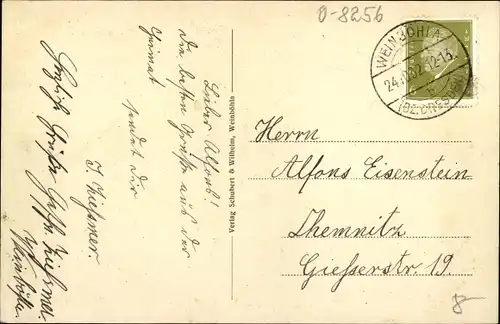 0-8256
WEINBÖHLA
24.
12-13.
(BZ. DRESDEN)
Herrn
Alfons Eisenstein
Chemnitz
Giesserstr. 19.
8
Verlag Schubert & Wilhelm, Weinböhla
Lieber Alfons!
Die besten Grüsse aus der
Heimat
sendet Dir
Herzliche Grüße